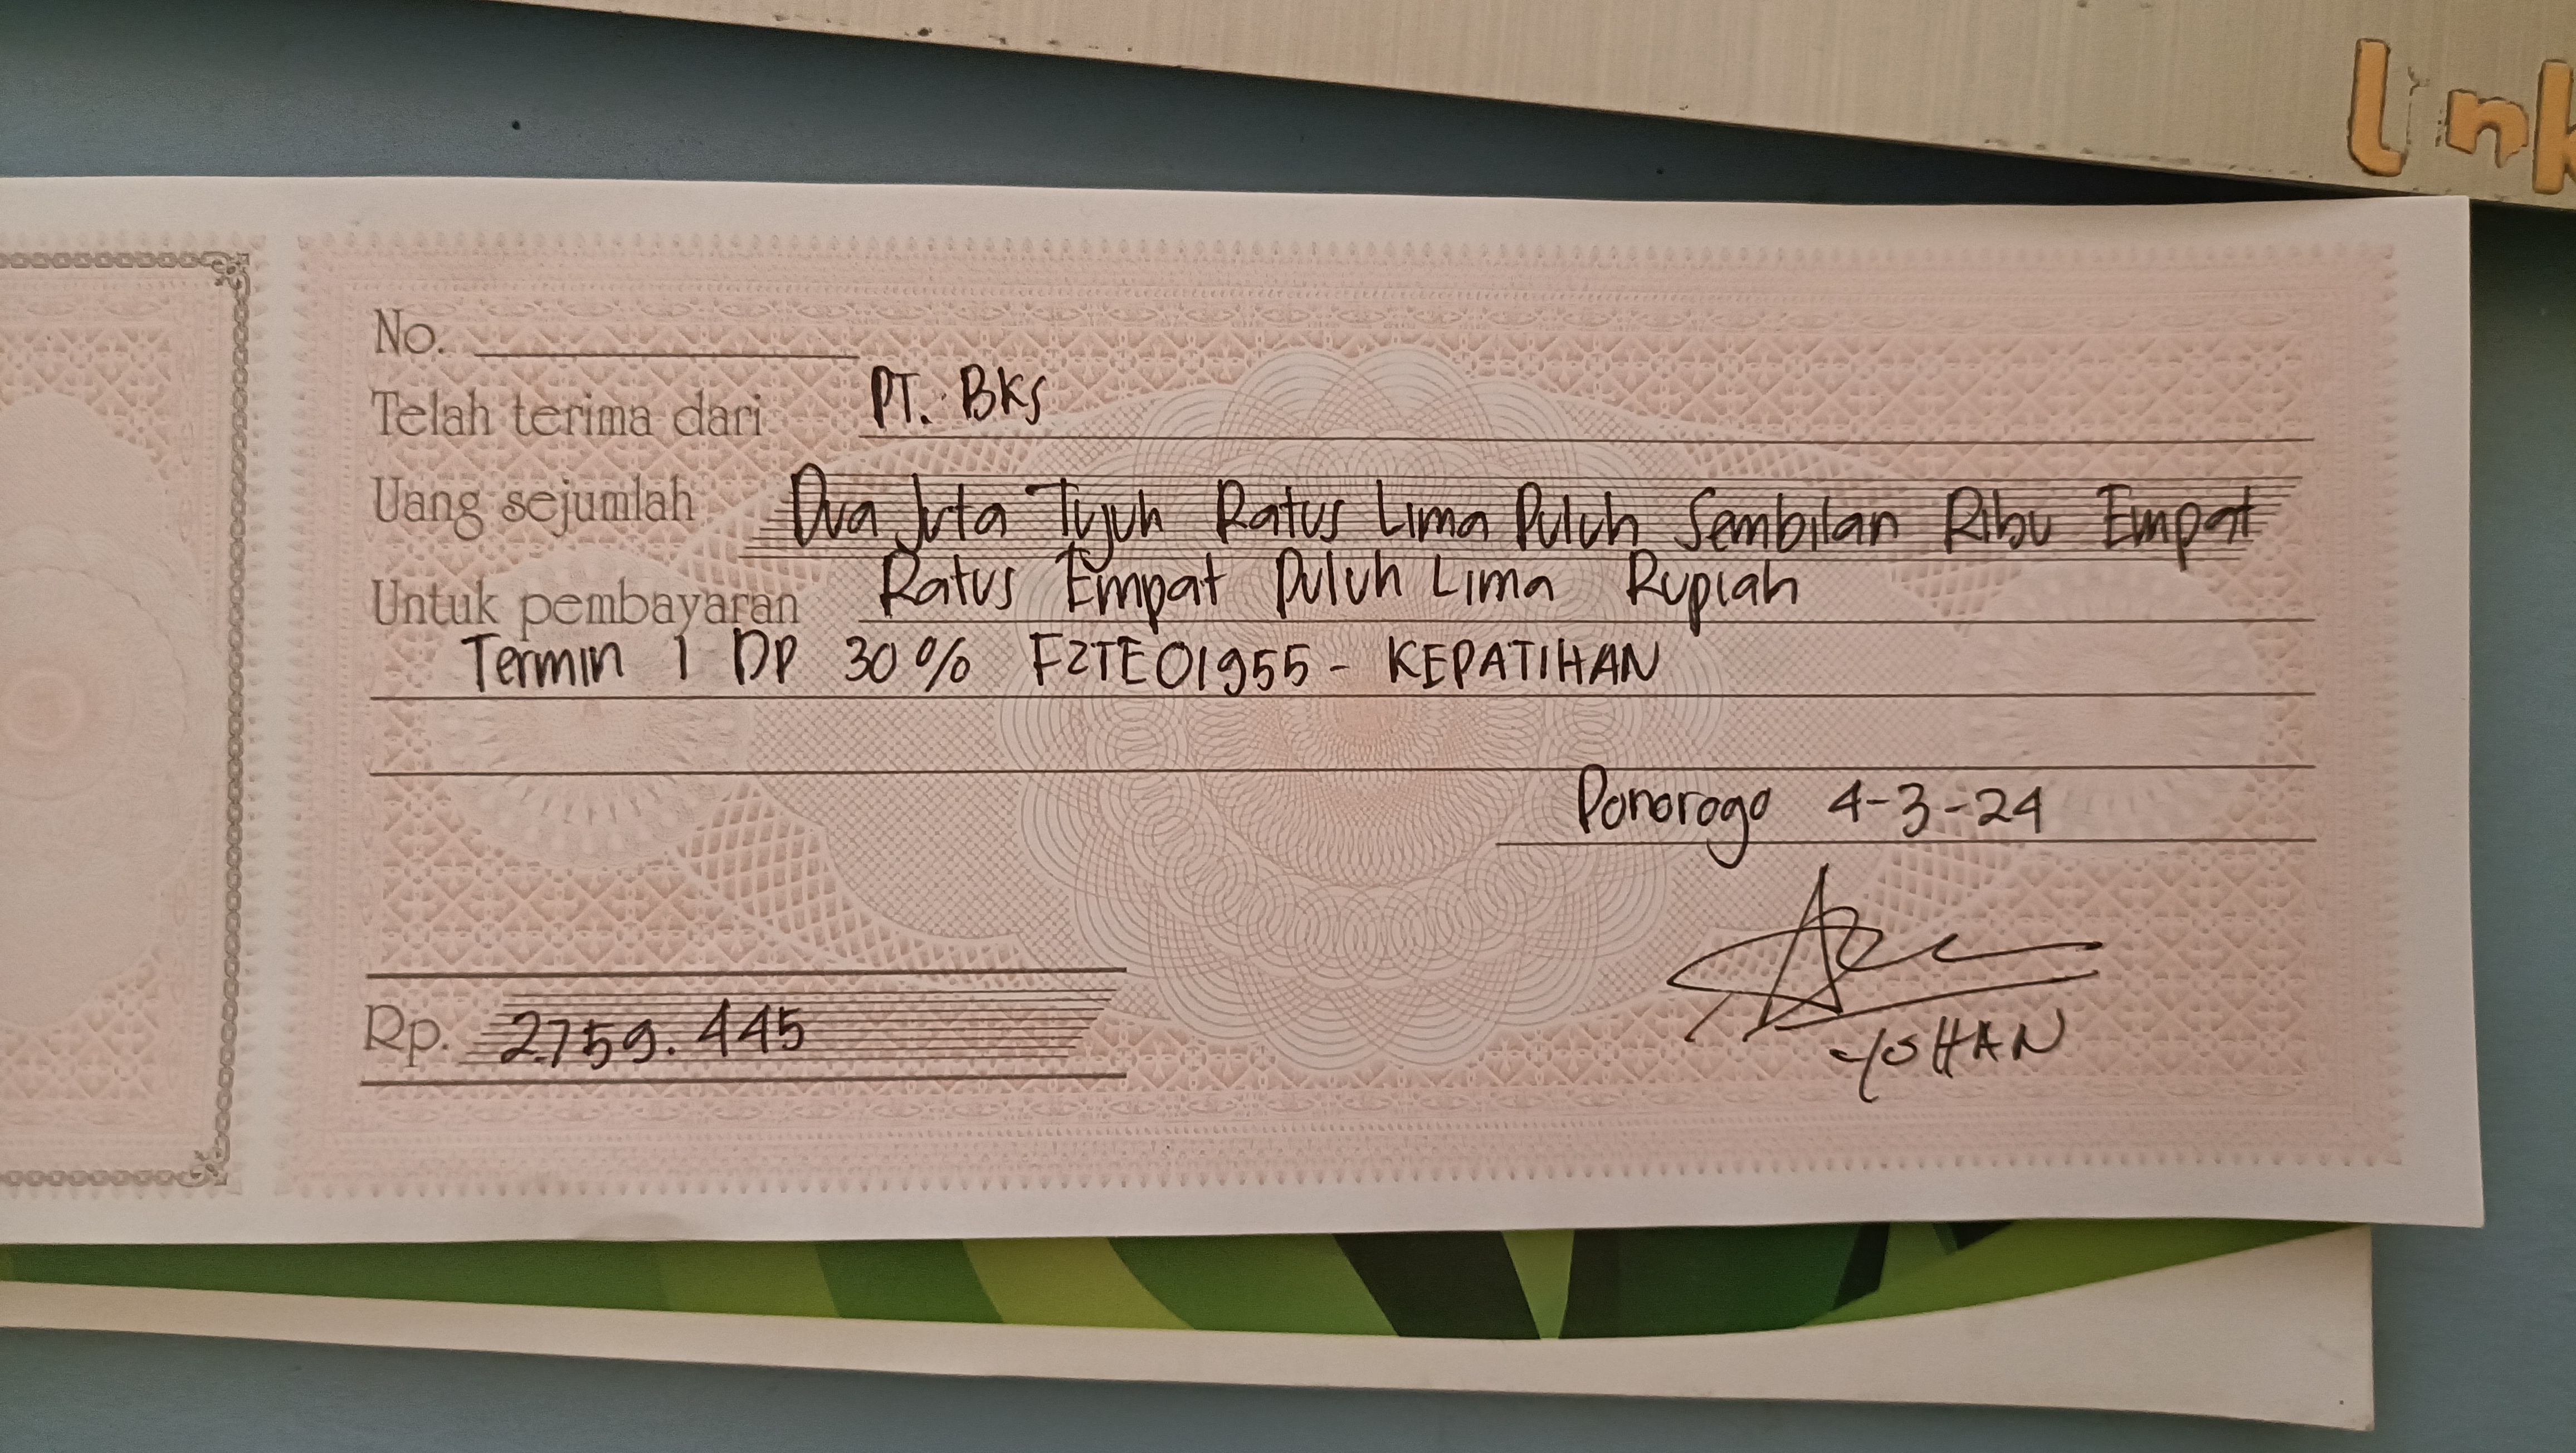 link
No.
Telah terima dari PT. BKS
Uang sejumlah Dua Juta Tujuh Ratus Lima Puluh Sembilan Ribu Empat
Untuk pembayaran Ratus Empat Puluh Lima Rupiah
Termin 1 DP 30% FZTE01955 - KEPATIHAN
Ponorogo 4-3-24
Rp. 2.759.445
YOHAN